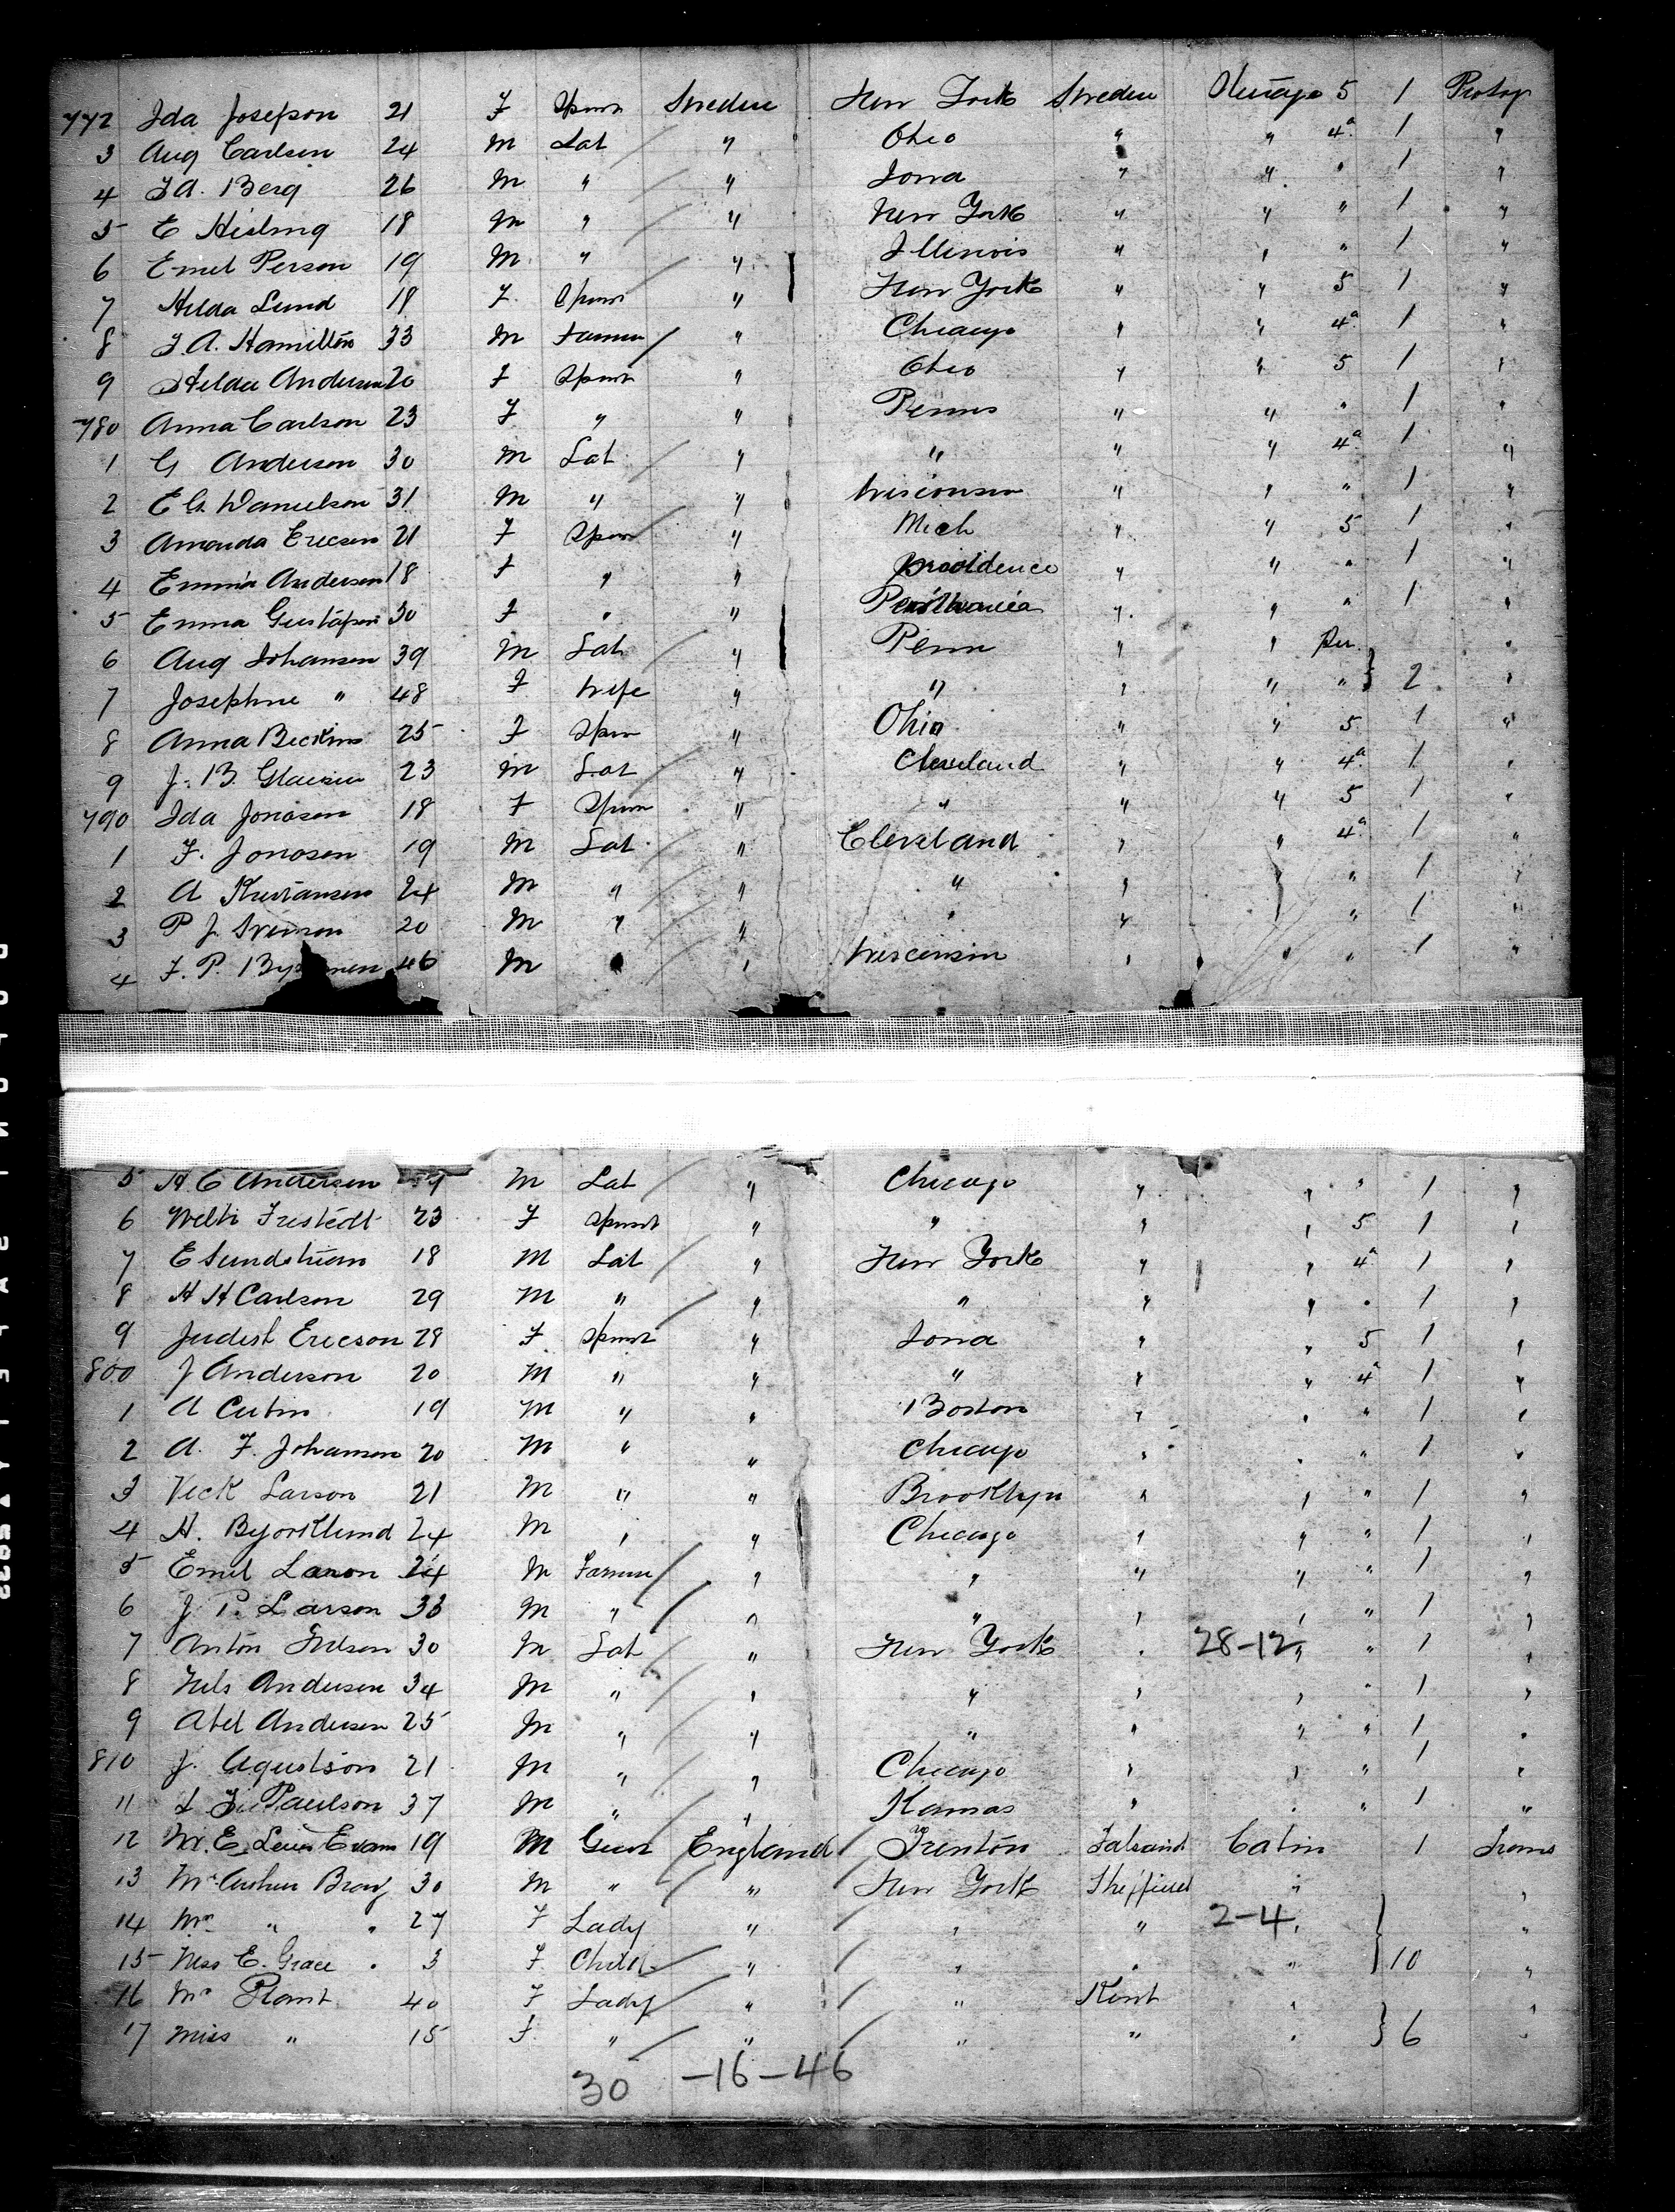 772 Ida Josepson 21 F Spinst Sweden New York Sweden 5 1 Protop
3 Aug Carlson 24 M Lab " Ohio " " 4a 1 "
4 J A. Berg 26 M " " Iowa " " " 1 "
5 E 18 M " " New York " " " 1 "
6 Emel Person 19 M " " Illinois " " " 1 "
7 Hilda Lund 18 F Spinst " New York " " 5 1 "
8 J. A. Hamilton 33 M Farmer " Chicago " " 4a 1 "
9 Hilda Anderson 20 F Spinst " Ohio " " 5 1 "
780 Anna Carlson 23 F " " Penns " " " 1 "
1 G Anderson 30 M Lab " " " " 4a 1 "
2 E G. Danielson 31 M " " Wisconsin " " " 1 "
3 Amanda Ericson 21 F Spinst " Mich " " 5 1 "
4 Emma Anderson 18 F " " Providence " " " 1 "
5 Emma Gustafson 30 F " " " " " 1 "
6 Aug Johanson 39 M Lab " Penn " " "
7 Josephine " 48 F Wife " " " " " } 2 "
8 Anna 25 F Spin " Ohio " " 5 1 "
9 J. B. 23 M Lab " Cleveland " " 4a 1 "
790 Ida Jonasen 18 F Spinst " " " " 5 1 "
1 F. Jonosen 19 M Lab " Cleveland " " 4a 1 "
2 A 24 M " " " " " " 1 "
3 P J. Svenson 20 M " " " " " " 1 "
4 F. P. 46 M " " Wisconsin " " " 1 "
5 H. C Anderson M Lab " Chicago " " " 1 "
6 23 F Spinst " " " " 5 1 "
7 E Sundstrom 18 M Lab " New York " " 4a 1 "
8 H H Carlson 29 M " " " " " " 1 "
9 Judest Ericson 28 F Spinst " Iowa " " 5 1 "
800 J Anderson 20 M " " " " " 4a 1 "
1 A 19 M " " Boston " " " 1 "
2 A. F. Johanson 20 M " " Chicago " " " 1 "
3 Vick Larson 21 M " " Brooklyn " " " 1 "
4 H. Bjorklund 24 M " " Chicago " " " 1 "
5 Emil Larson 24 M Farmer " " " " " 1 "
6 J. P. Larson 33 M " " " " " " 1 "
7 Anton Nilson 30 M Lab " New York " 28-12 " " 1 "
8 Nels Anderson 34 M " " " " " " 1 "
9 Abel Anderson 25 M " " " " " " 1 "
810 J. Agustson 21 M " " Chicago " " " 1 "
11 Paulson 37 M " " Kansas " " " 1 "
12 Mr. E. Lewis Evans 19 M Gent England Trenton Cabin 1
13 Mr Arthur 30 M " " New York Sheffield " "
14 Mrs " " 27 F Lady " " " 2-4 " "
15 Miss E. Grace " 3 F Child " " " " } 10 "
16 Mrs Plant 40 F Lady " " Kent " "
17 Miss " 15 F " " " " " } 6 "
30 -16-46